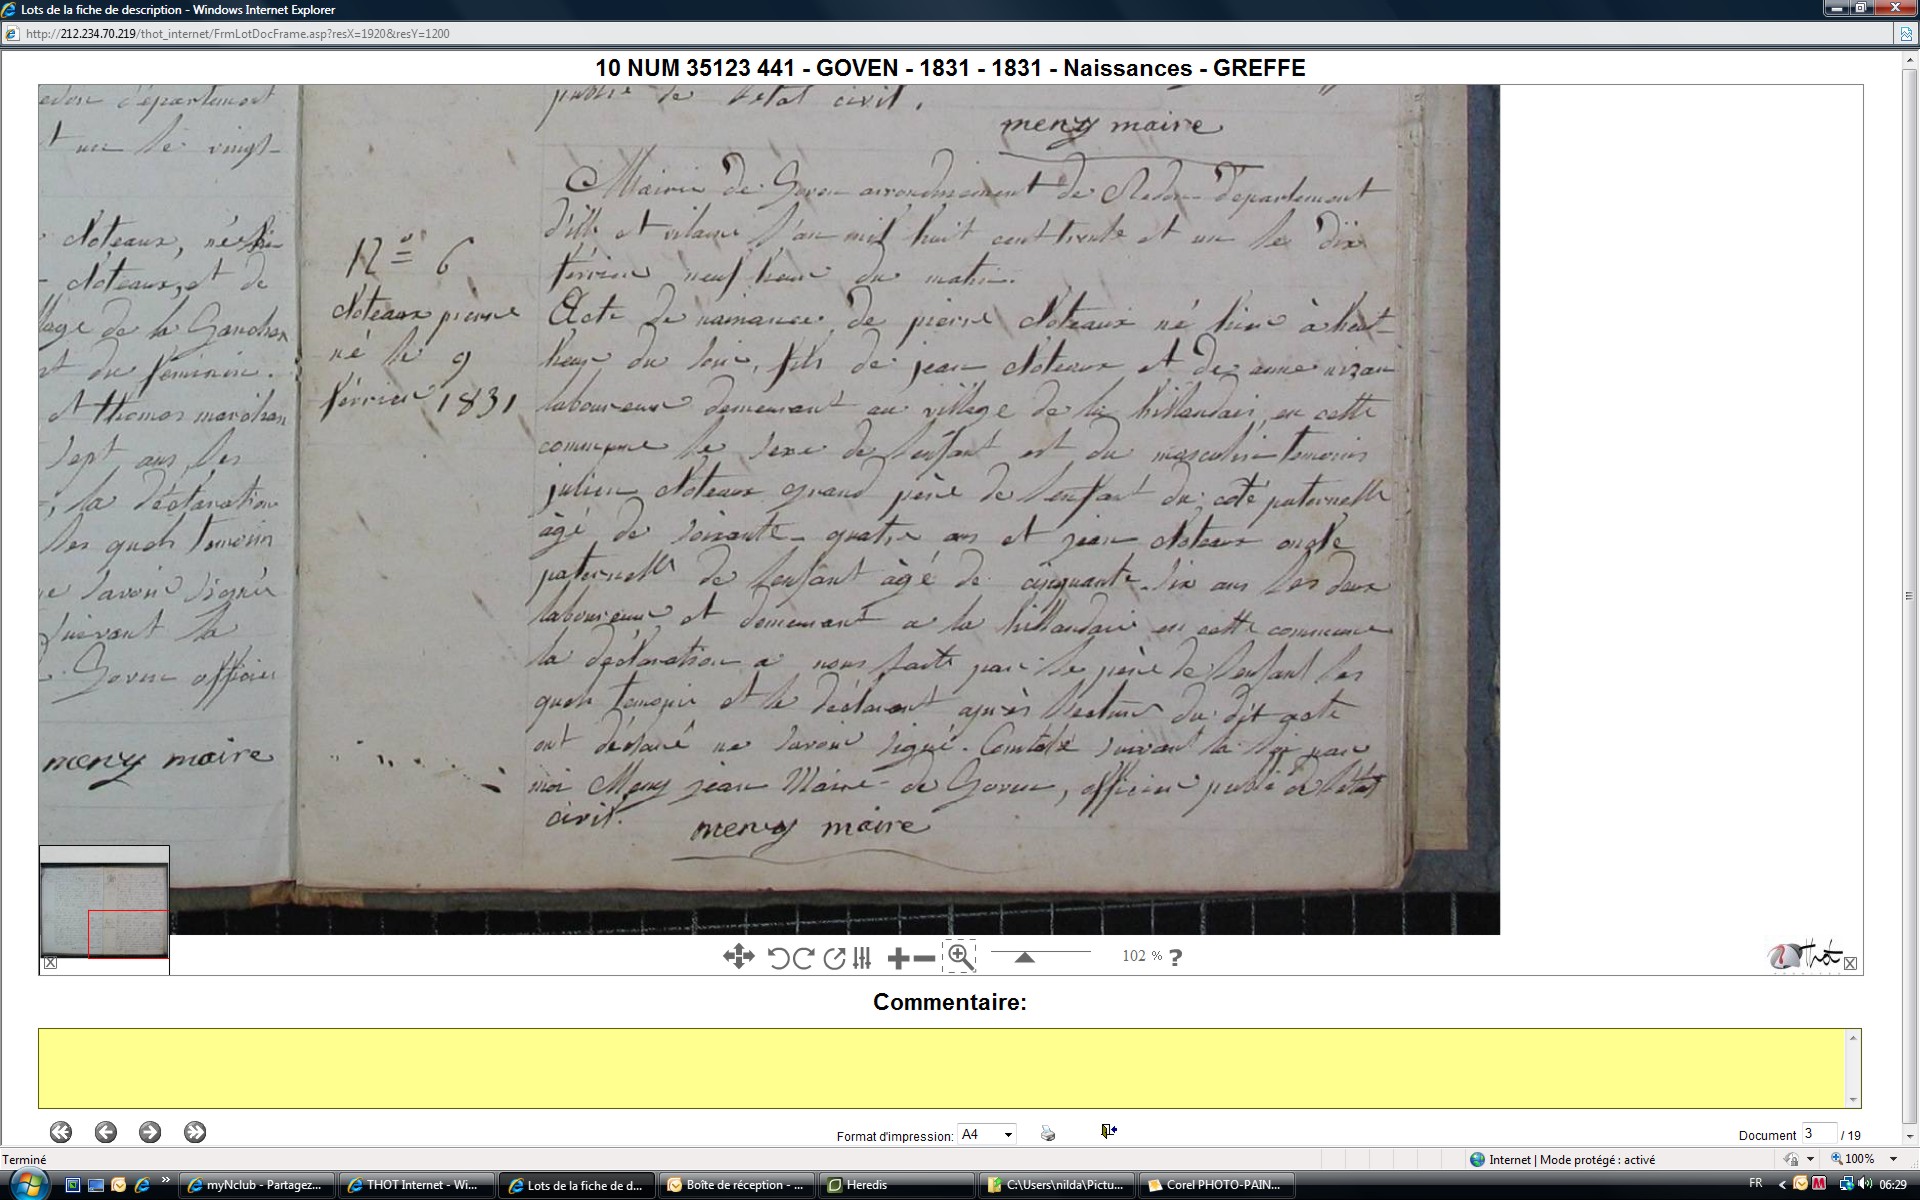 Lots de la fiche de description - Windows Internet Explorer
http://212.234.70.219/thot_internet/FrmLotDocFrame.asp?resX=1920&resY=1200
10 NUM 35123 441 - GOVEN - 1831 - 1831 - Naissances - GREFFE
département
un le vingt-
cloteaux, né
cloteaux, et de
de la
du féminin.
et thomas
sept ans, les
, la déclaration
les quels temoin
savoir signer
suivant la
Goven officier
meny maire
N° 6
cloteaux pierre
né le 9
février 1831
publie de l'état civil.
meny maire
Mairie de Goven arrondissement de Redon departement
d'ille et vilaine l'an mil huit cent trente et un le dix
février neuf heur du matin.
Acte de naissance de pierre cloteaux né hier à huit
heur du soir, fils de jean cloteaux et de anne nizan
laboureur demeurant au village de la hillandais en cette
commune le sexe de l'enfant est du masculin temoins
julien cloteaux grand père de l'enfant du coté paternelle
âgé de soixante-quatre ans et jean cloteaux oncle
paternelle de l'enfant âgé de cinquante-six ans les deux
laboureur et demeurant a la hillandais en cette commune
la déclaration a nous faite par le père de l'enfant les
quels temoin et le déclarant après lecture du dit acte
ont déclaré ne savoir signé. Constaté suivant la loi par
moi Meny jean Maire de Goven, officier public de l'état
civil.
meny maire
102 % ?
Thot
Commentaire:
Format d'impression: A4
Document 3 / 19
Terminé
Internet | Mode protégé : activé
100%
myNclub - Partagez...
THOT Internet - Wi...
Lots de la fiche de d...
Boîte de réception - ...
Heredis
C:\Users\nilda\Pictu...
Corel PHOTO-PAIN...
FR
06:29